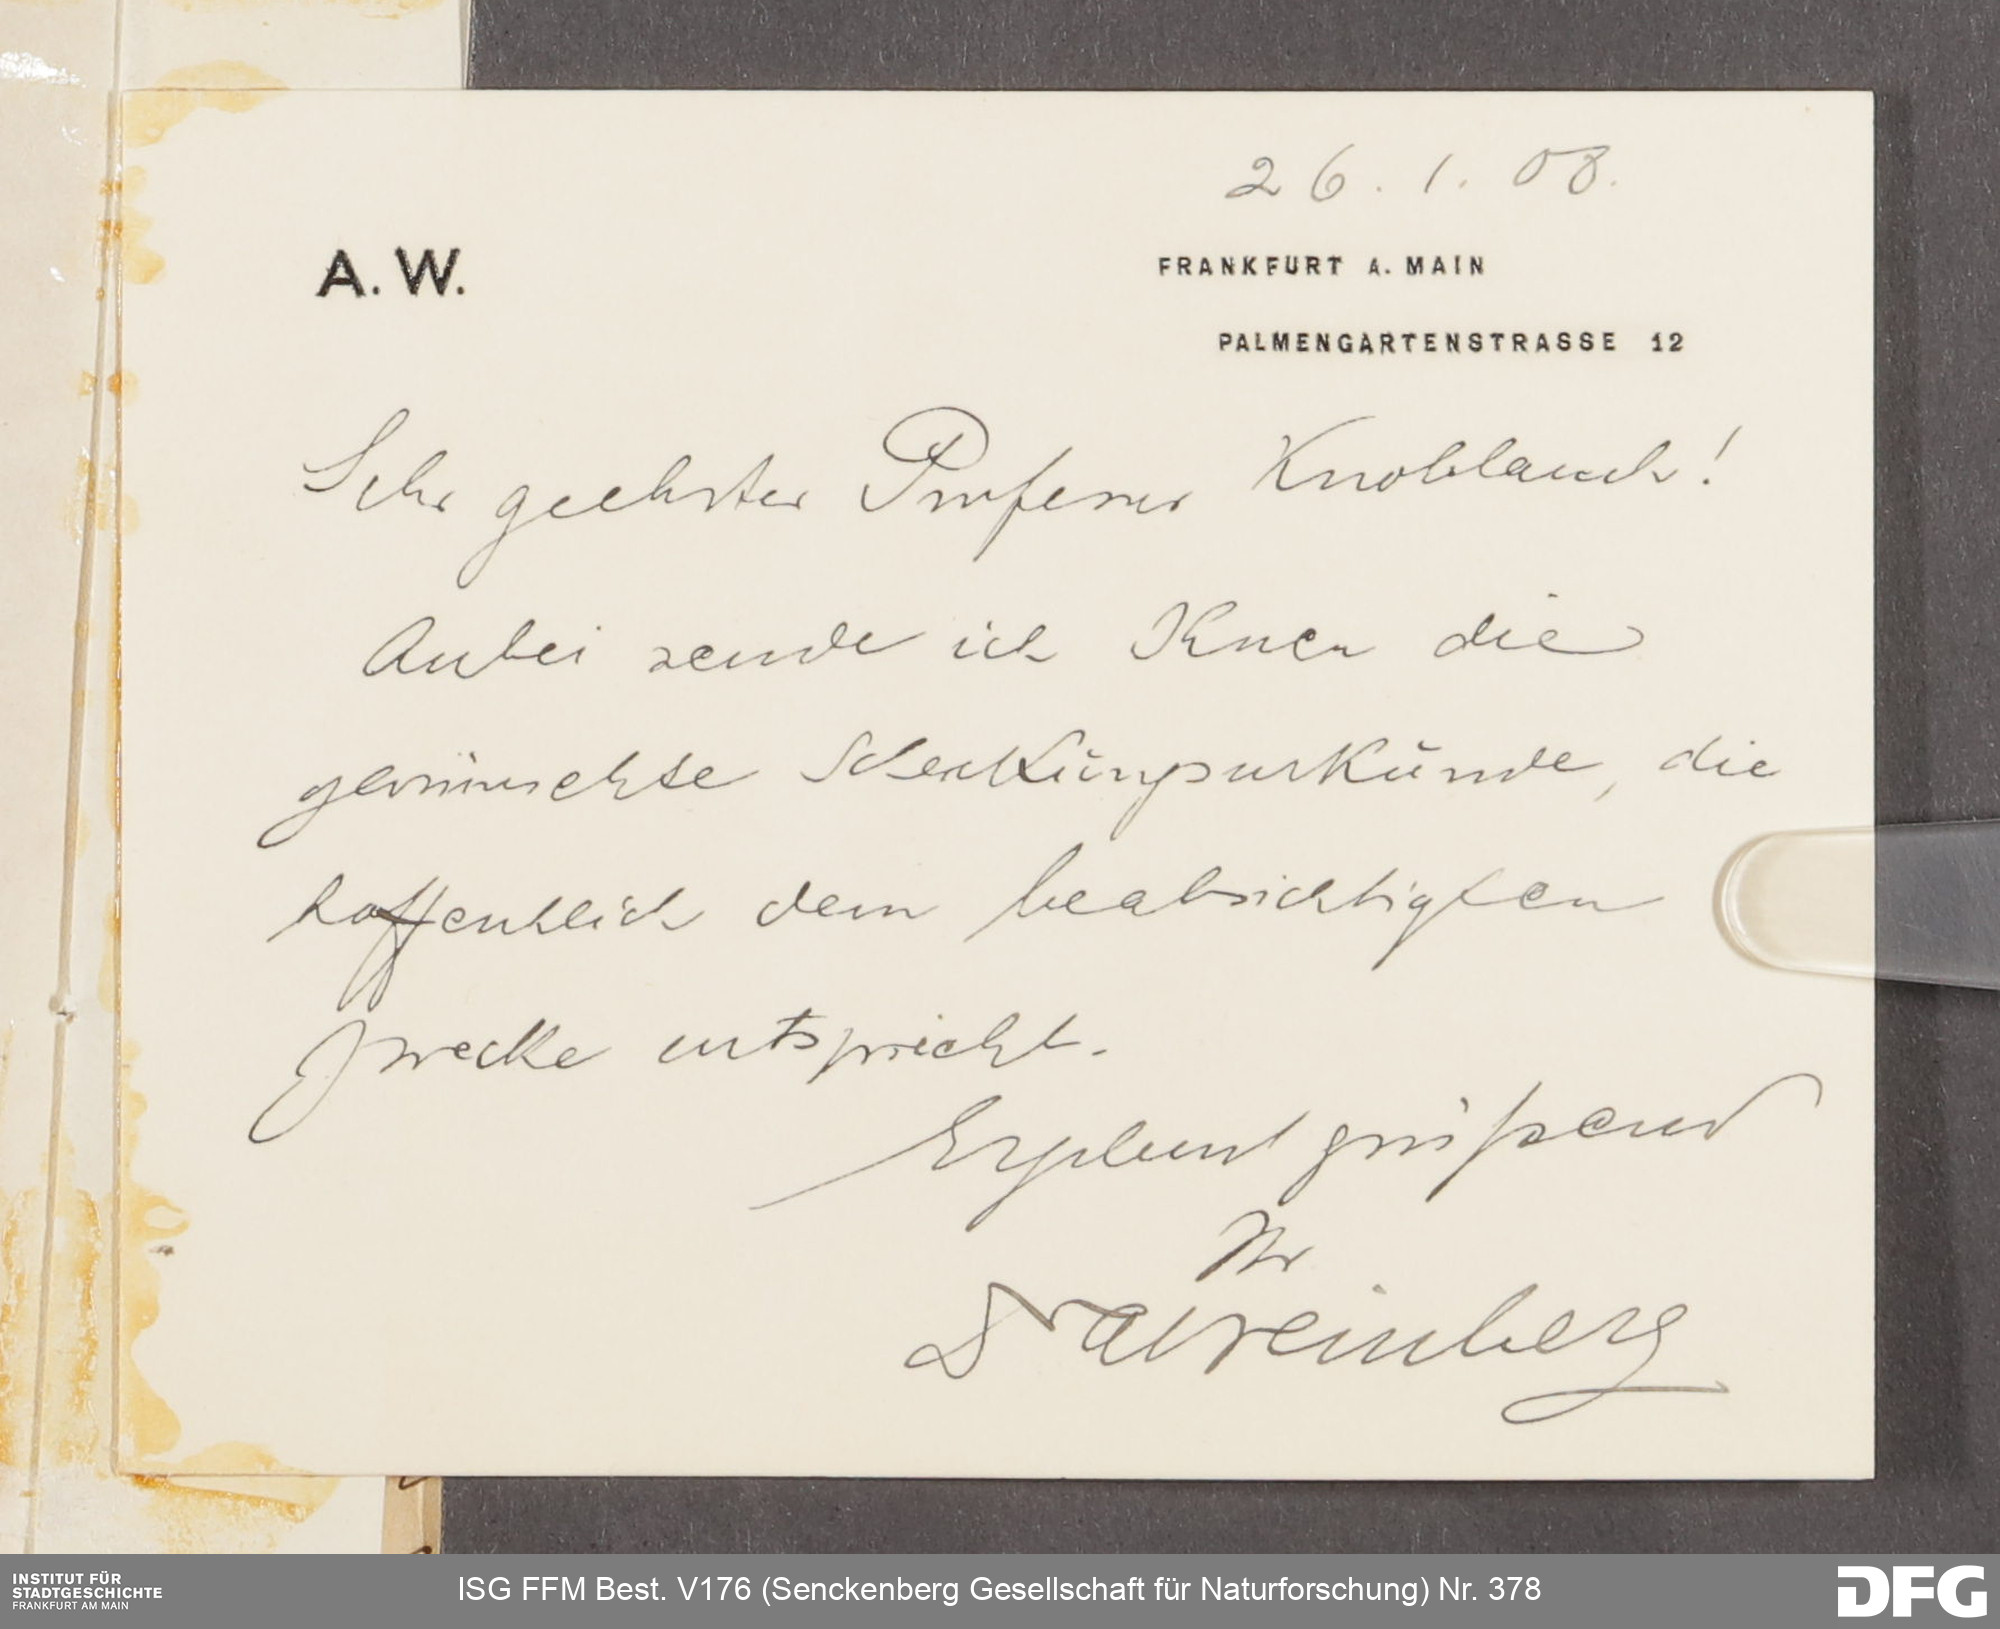 26. 1. 08.
A. W.
FRANKFURT A. MAIN
PALMENGARTENSTRASSE 12
Sehr geehrter Professor Knoblauch!
Anbei sende ich Ihnen die
gewünschte Schenkungsurkunde, die
hoffentlich dem beabsichtigten
Zwecke entspricht.
Ergebenst grüßend
Ihr
Dr A Weinberg
INSTITUT FÜR
STADTGESCHICHTE
FRANKFURT AM MAIN
ISG FFM Best. V176 (Senckenberg Gesellschaft für Naturforschung) Nr. 378
DFG